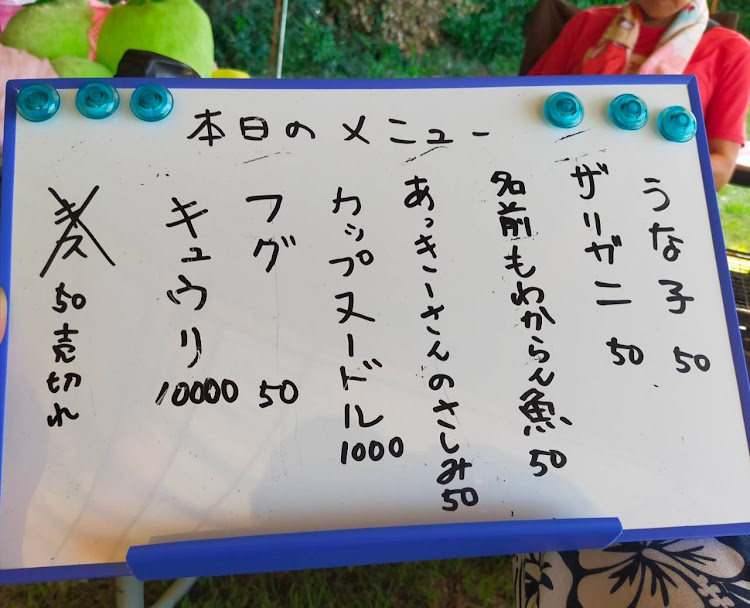 本日のメニュー
うな子 50
ザリガニ 50
名前もわからん魚 50
あっきーさんのさしみ 50
カップヌードル 1000
フグ 50
キュウリ 10000
キス 50 売切れ